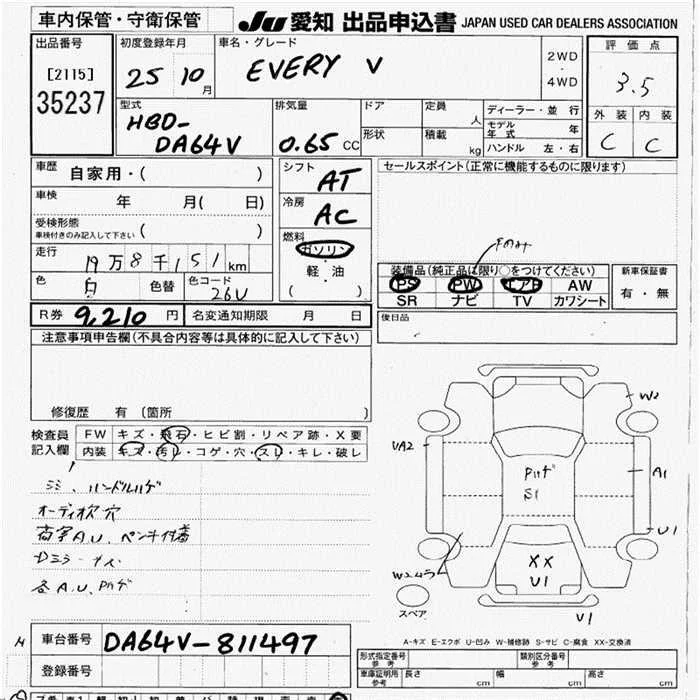 車内保管・守衛保管
JU 愛知 出品申込書 JAPAN USED CAR DEALERS ASSOCIATION
出品番号
[2115]
35237
初度登録年月
25 10 月
車名・グレード
EVERY V
2WD
・
4WD
評価点
3.5
外装 内装
C C
型式
HBD-
DA64V
排気量
0.65 CC
ドア
形状
定員
人
積載
kg
ディーラー・並行
モデル年式 年
ハンドル 左・右
車歴
自家用・( )
車検
年 月( 日)
受検形態
車検付きのみ記入して下さい ( )
走行
19万8千151km
色
白
色替
色コード
26U
シフト
AT
冷房
AC
燃料
ガソリン
・
軽・油
( )
セールスポイント(正常に機能するものに限ります)
Fのみ
装備品(純正品に限り○をつけてください)
PS PW エアB AW
SR ナビ TV カワシート
新車保証書
有・無
後日品
R券 9,210 円
名変通知期限 月 日
注意事項申告欄(不具合内容等は具体的に記入して下さい)
修復歴 有(箇所 )
検査員
記入欄
FW キズ・飛石・ヒビ割・リペア跡・X要
内装 キズ・汚レ・コゲ・穴・スレ・キレ・破レ
ミミ、ハンドルハゲ
オーディオ欠 穴
荷室A.U、ペンキ付着
各A.U、Pハゲ
W2
VA2
Pハゲ
S1
A1
U1
XX
U1
U1
スペア
A-キズ E-エクボ U-凹み W-補修跡 S-サビ C-腐食 XX-交換済
車台番号
DA64V-811497
登録番号
形式指定番号
参考
類別区分番号
参考
車庫証明用
参考
長さ cm 幅 cm 高さ cm